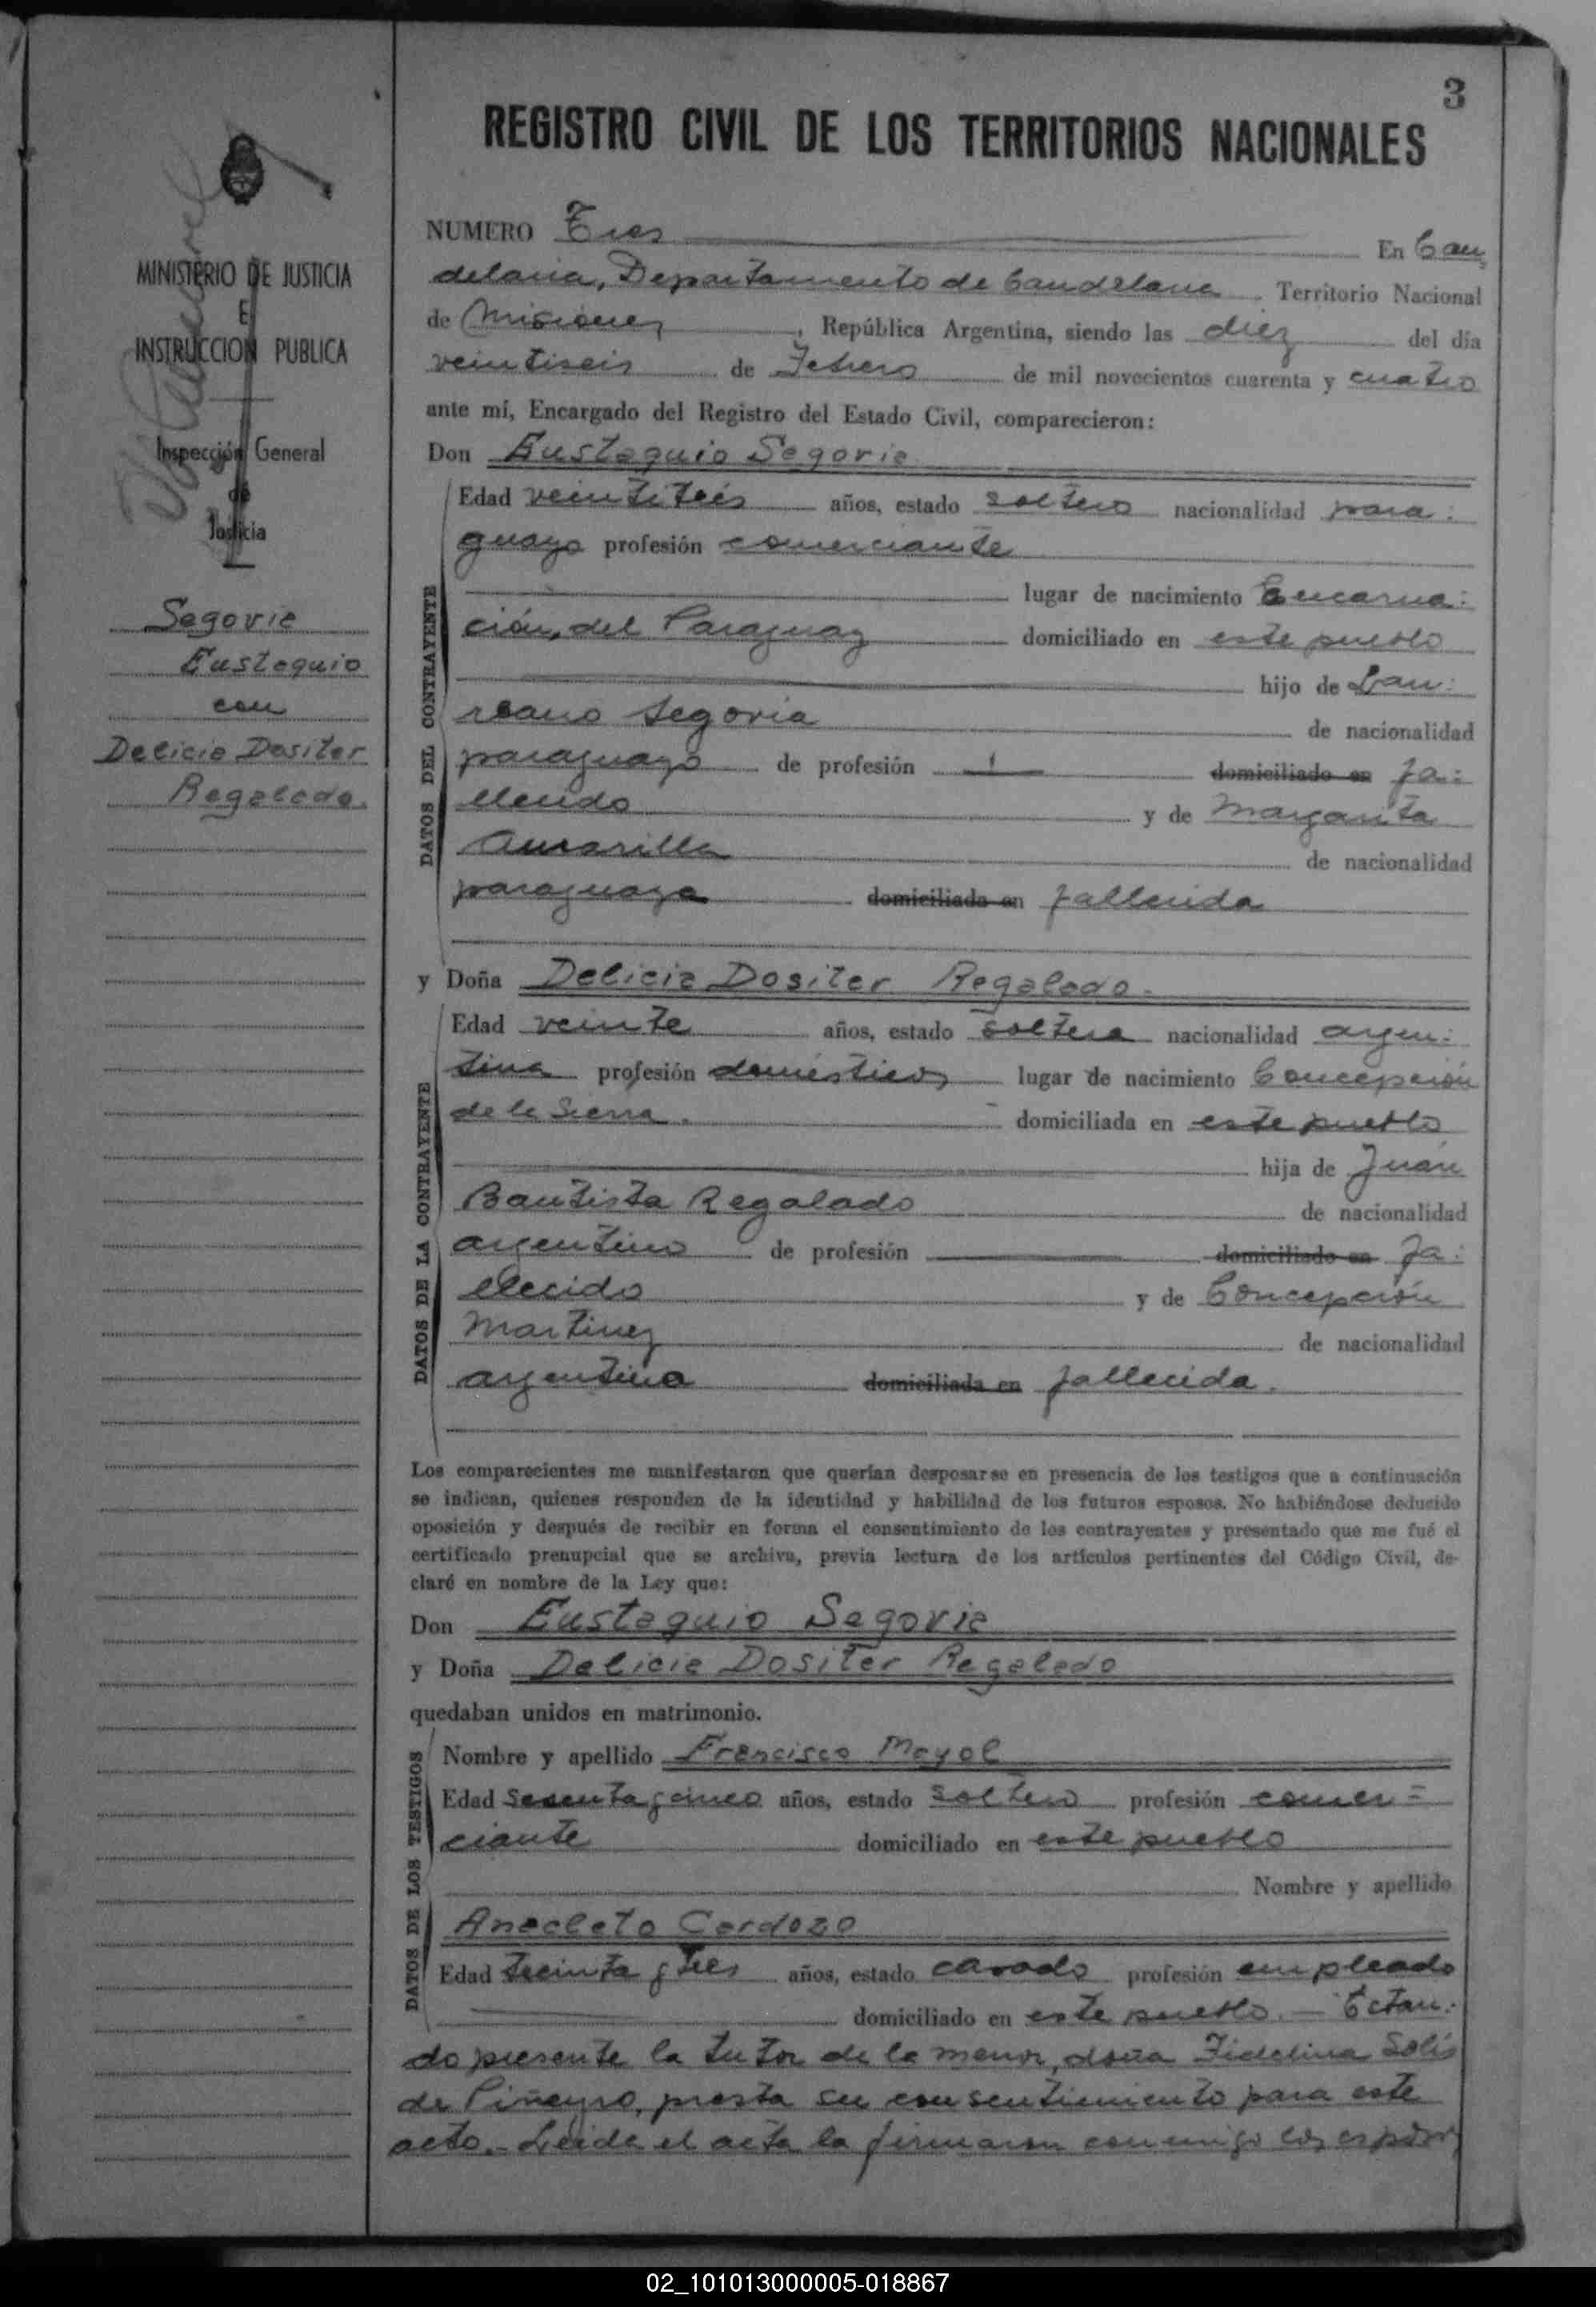 3
REGISTRO CIVIL DE LOS TERRITORIOS NACIONALES
MINISTERIO DE JUSTICIA
E
INSTRUCCION PUBLICA
Inspección General
de
Justicia
Segovia
Eustaquio
con
Delicia Dositer
Regalado.
NUMERO Tres En Can
delaria, Departamento de Candelaria Territorio Nacional
de Misiones, República Argentina, siendo las diez del día
veintiseis de Febrero de mil novecientos cuarenta y cuatro
ante mí, Encargado del Registro del Estado Civil, comparecieron:
Don Eustaquio Segovia
DATOS DEL CONTRAYENTE
Edad veintitrés años, estado soltero nacionalidad para:
guayo profesión comerciante
lugar de nacimiento Encarna:
ción, del Paraguay domiciliado en este pueblo
hijo de Lau:
reano Segovia de nacionalidad
paraguayo de profesión domiciliado en fa:
llecido y de Margarita
Amarilla de nacionalidad
paraguaya domiciliada en fallecida
y Doña Delicia Dositer Regalado.
DATOS DE LA CONTRAYENTE
Edad veinte años, estado soltera nacionalidad argen:
tina profesión domésticos lugar de nacimiento Concepción
de la Sierra. domiciliada en este pueblo
hija de Juan
Bautista Regalado de nacionalidad
argentino de profesión domiciliado en fa:
llecido y de Concepción
Martinez de nacionalidad
argentina domiciliada en fallecida.
Los comparecientes me manifestaron que querían desposarse en presencia de los testigos que a continuación
se indican, quienes responden de la identidad y habilidad de los futuros esposos. No habiéndose deducido
oposición y después de recibir en forma el consentimiento de los contrayentes y presentado que me fué el
certificado prenupcial que se archiva, previa lectura de los artículos pertinentes del Código Civil, de-
claré en nombre de la Ley que:
Don Eustaquio Segovia
y Doña Delicia Dositer Regalado
quedaban unidos en matrimonio.
DATOS DE LOS TESTIGOS
Nombre y apellido Francisco Mayol
Edad sesenta y cinco años, estado soltero profesión comer=
ciante domiciliado en este pueblo
Nombre y apellido
Anacleto Cardozo
Edad treinta y tres años, estado casado profesión empleado
domiciliado en este pueblo. — Estan:
do presente la tutor de la menor, doña Fidelina Solis
de Piñeyro, presta su consentimiento para este
acto.- Leida el acta la firmaron conmigo los esposos
02_101013000005-018867